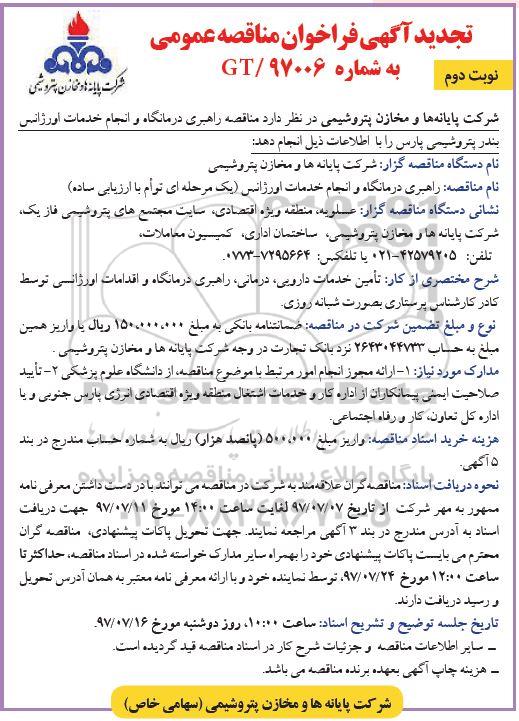 تجدید آگهی فراخوان مناقصه عمومی
به شماره GT/ ۹۷۰۰۶
نوبت دوم
شرکت پایانه‌ها و مخازن پتروشیمی
شرکت پایانه‌ها و مخازن پتروشیمی در نظر دارد مناقصه راهبری درمانگاه و انجام خدمات اورژانس
بندر پتروشیمی پارس را با اطلاعات ذیل انجام دهد:
نام دستگاه مناقصه گزار: شرکت پایانه ها و مخازن پتروشیمی
نام مناقصه: راهبری درمانگاه و انجام خدمات اورژانس (یک مرحله ای توأم با ارزیابی ساده)
نشانی دستگاه مناقصه گزار: عسلویه، منطقه ویژه اقتصادی، سایت مجتمع های پتروشیمی فاز یک،
شرکت پایانه ها و مخازن پتروشیمی، ساختمان اداری، کمیسیون معاملات،
تلفن: ۴۲۵۷۹۲۰۵-۰۲۱ یا تلفکس: ۷۲۹۵۶۶۴-۰۷۷۳
شرح مختصری از کار: تأمین خدمات دارویی، درمانی، راهبری درمانگاه و اقدامات اورژانسی توسط
کادر کارشناس پرستاری بصورت شبانه روزی.
نوع و مبلغ تضمین شرکت در مناقصه: ضمانتنامه بانکی به مبلغ ۱۵۰،۰۰۰،۰۰۰ ریال یا واریز همین
مبلغ به حساب ۲۶۴۳۰۴۴۷۳۳ نزد بانک تجارت در وجه شرکت پایانه ها و مخازن پتروشیمی .
مدارک مورد نیاز: ۱- ارائه مجوز انجام امور مرتبط با موضوع مناقصه، از دانشگاه علوم پزشکی ۲- تأیید
صلاحیت ایمنی پیمانکاران از اداره کار و خدمات اشتغال منطقه ویژه اقتصادی انرژی پارس جنوبی و یا
اداره کل تعاون، کار و رفاه اجتماعی.
هزینه خرید اسناد مناقصه: واریز مبلغ ۵۰۰،۰۰۰ (پانصد هزار) ریال به شماره حساب مندرج در بند
۵ آگهی.
نحوه دریافت اسناد: مناقصه گران علاقه‌مند به شرکت در مناقصه می توانند با در دست داشتن معرفی نامه
ممهور به مهر شرکت از تاریخ ۹۷/۰۷/۰۷ لغایت ساعت ۱۴:۰۰ مورخ ۹۷/۰۷/۱۱ جهت دریافت
اسناد به آدرس مندرج در بند ۳ آگهی مراجعه نمایند. جهت تحویل پاکات پیشنهادی، مناقصه گران
محترم می بایست پاکات پیشنهادی خود را بهمراه سایر مدارک خواسته شده در اسناد مناقصه، حداکثر تا
ساعت ۱۲:۰۰ مورخ ۹۷/۰۷/۲۴، توسط نماینده خود و با ارائه معرفی نامه معتبر به همان آدرس تحویل
و رسید دریافت دارند.
تاریخ جلسه توضیح و تشریح اسناد: ساعت ۱۰:۰۰، روز دوشنبه مورخ ۹۷/۰۷/۱۶.
ــ سایر اطلاعات مناقصه و جزئیات شرح کار در اسناد مناقصه قید گردیده است.
ــ هزینه چاپ آگهی بعهده برنده مناقصه می باشد.
شرکت پایانه ها و مخازن پتروشیمی (سهامی خاص)